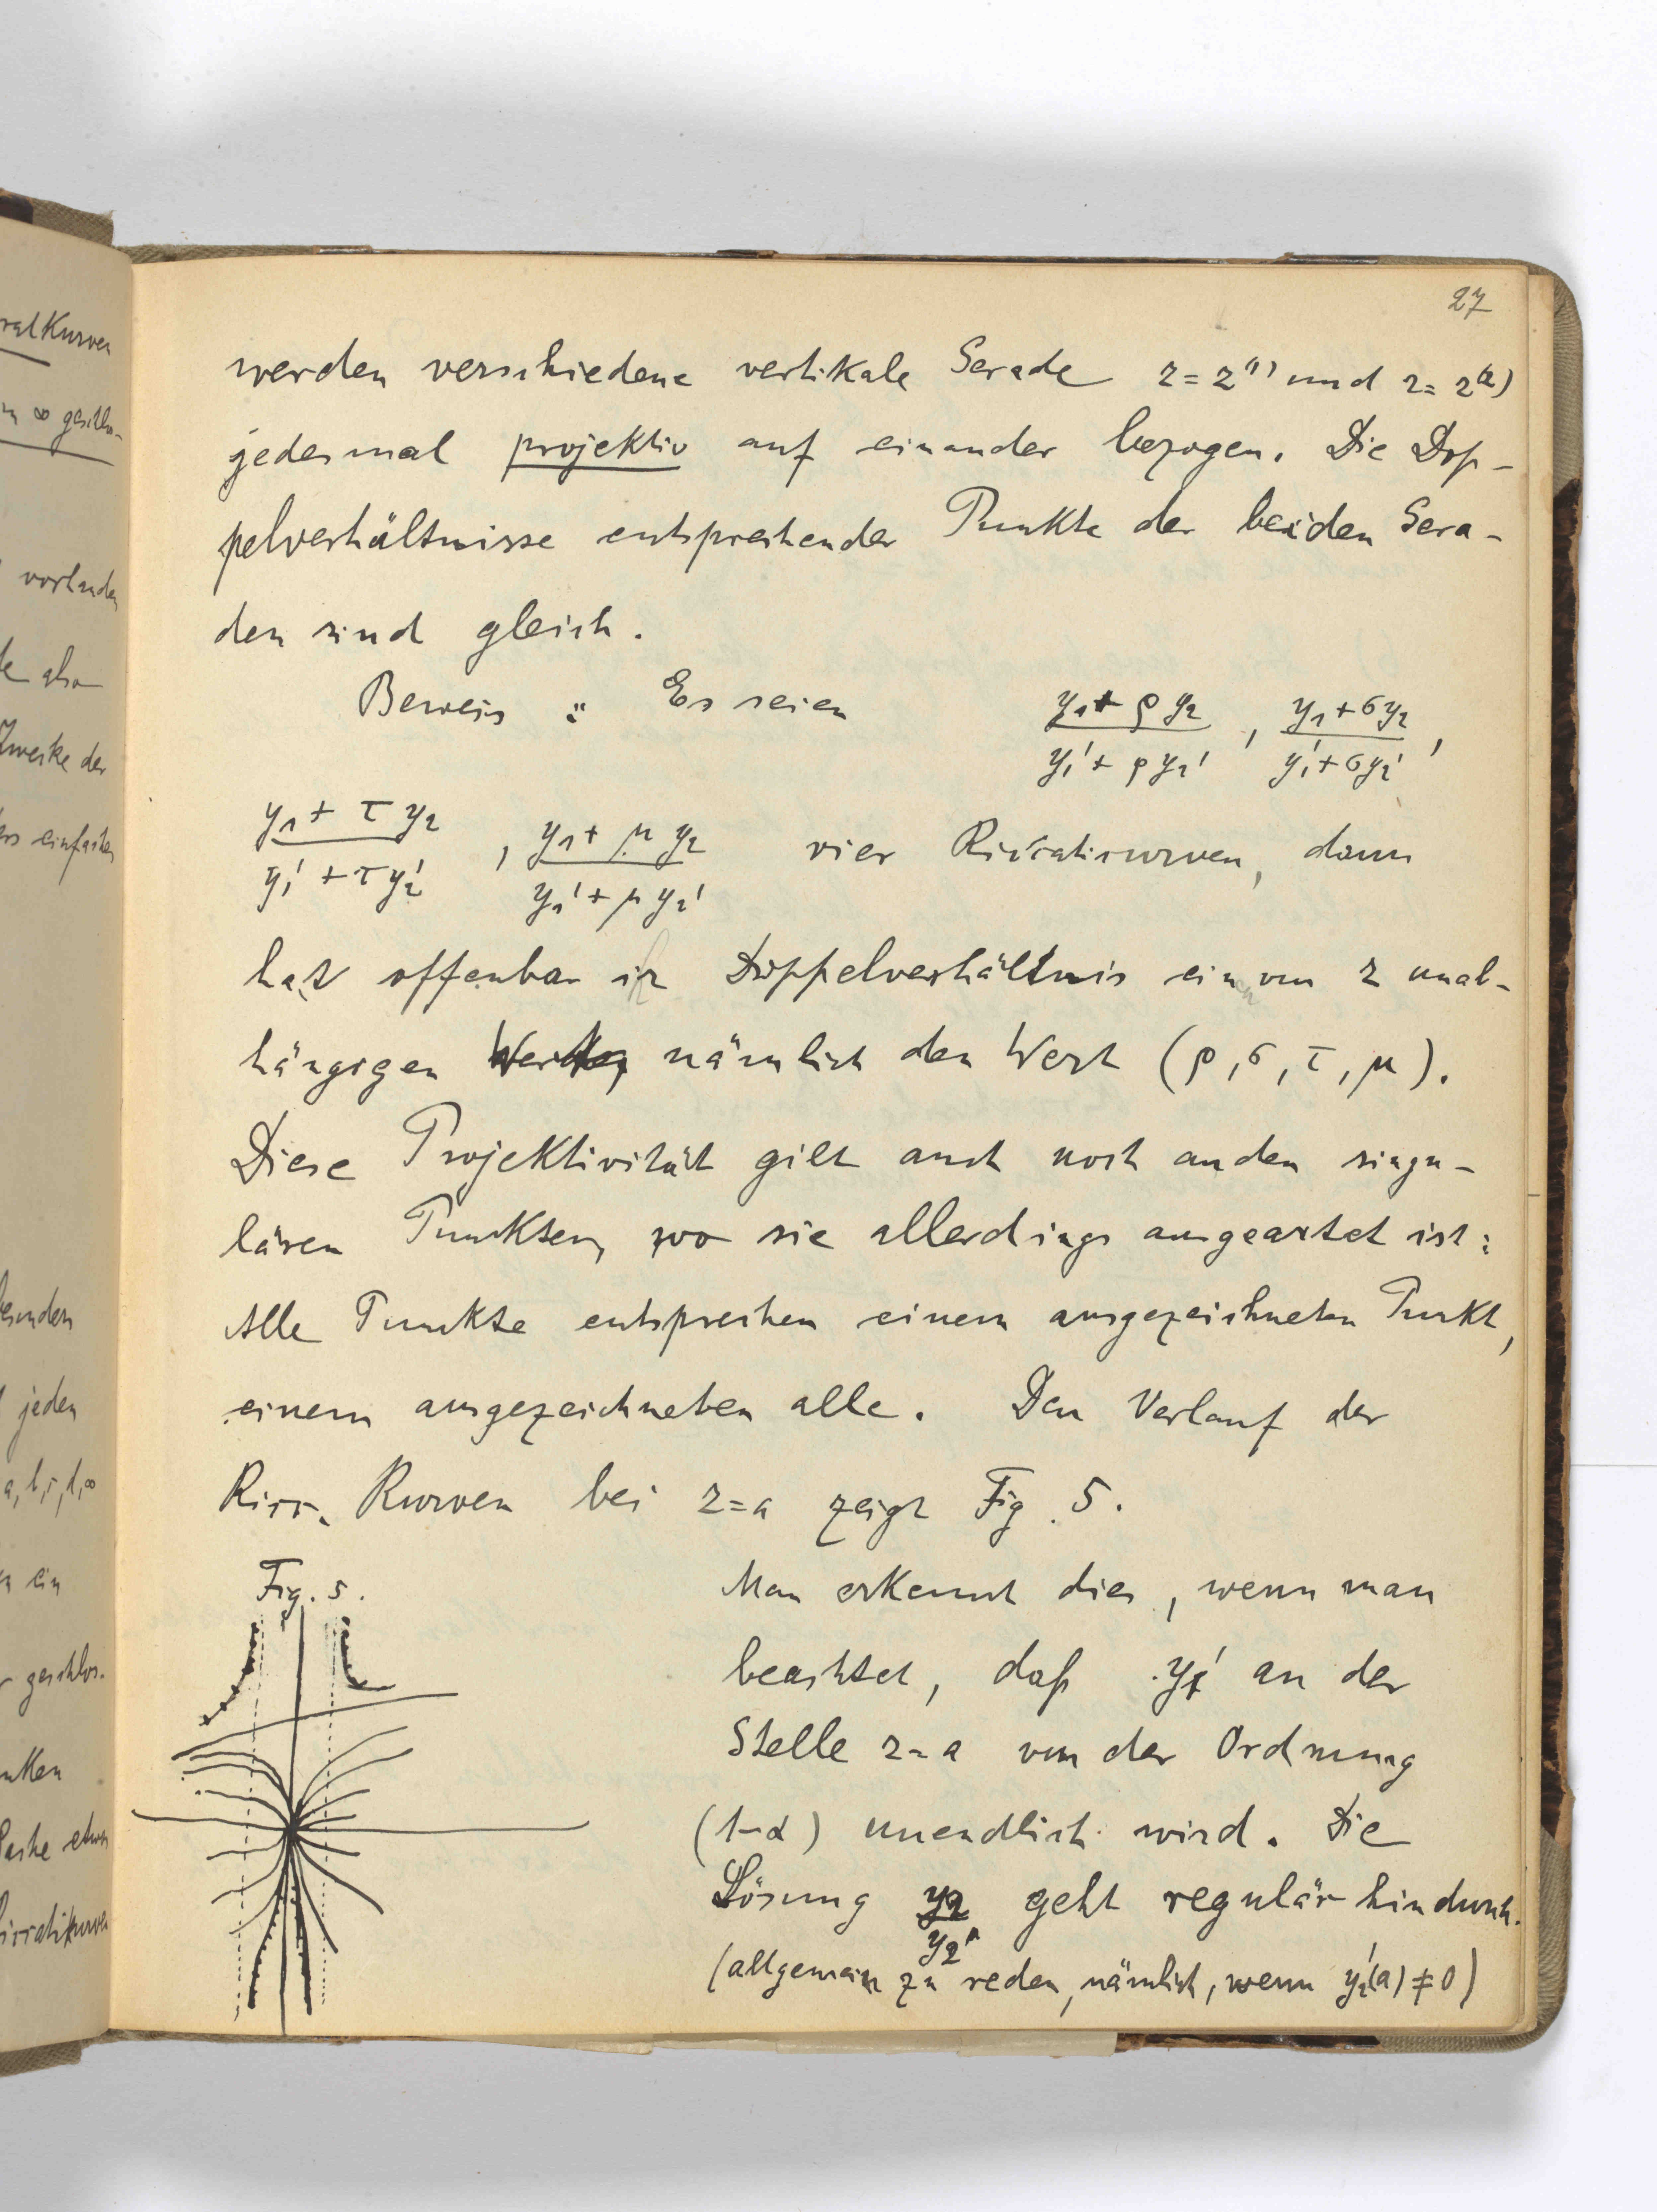 27
werden verschiedene vertikale Gerade z = z⁽¹⁾ und z = z⁽²⁾
jedesmal projektiv auf einander bezogen. Die Dop-
pelverhältnisse entsprechender Punkte der beiden Gera-
den sind gleich.
Beweis : Es seien (y₁ + ρ y₂)/(y₁' + ρ y₂') , (y₁ + σ y₂)/(y₁' + σ y₂') ,
(y₁ + τ y₂)/(y₁' + τ y₂') , (y₁ + μ y₂)/(y₁' + μ y₂') vier Riccaticurven, dann
hat offenbar ihr Doppelverhältnis einen von z unab-
hängigen nämlich den Wert (ρ, σ, τ, μ).
Diese Projektivität gilt auch noch an den singu-
lären Punkten, wo sie allerdings ausgeartet ist:
Alle Punkte entsprechen einem ausgezeichneten Punkt,
einem ausgezeichneten alle. Den Verlauf der
Ricc. Kurven bei z = a zeigt Fig. 5.
Fig. 5.
Man erkennt dies, wenn man
beachtet, daß y₁' an der
Stelle z = a von der Ordnung
(1-α) unendlich wird. Die
Lösung y₂/y₂' geht regulär hindurch.
(allgemein zu reden, nämlich, wenn y₂'(a) ≠ 0)
ralkurven
∞ geschlo-
vorhanden
also
Zwecke der
einfaches
jeden
a, b, c, d, ∞
ein
geschlos.
etwa